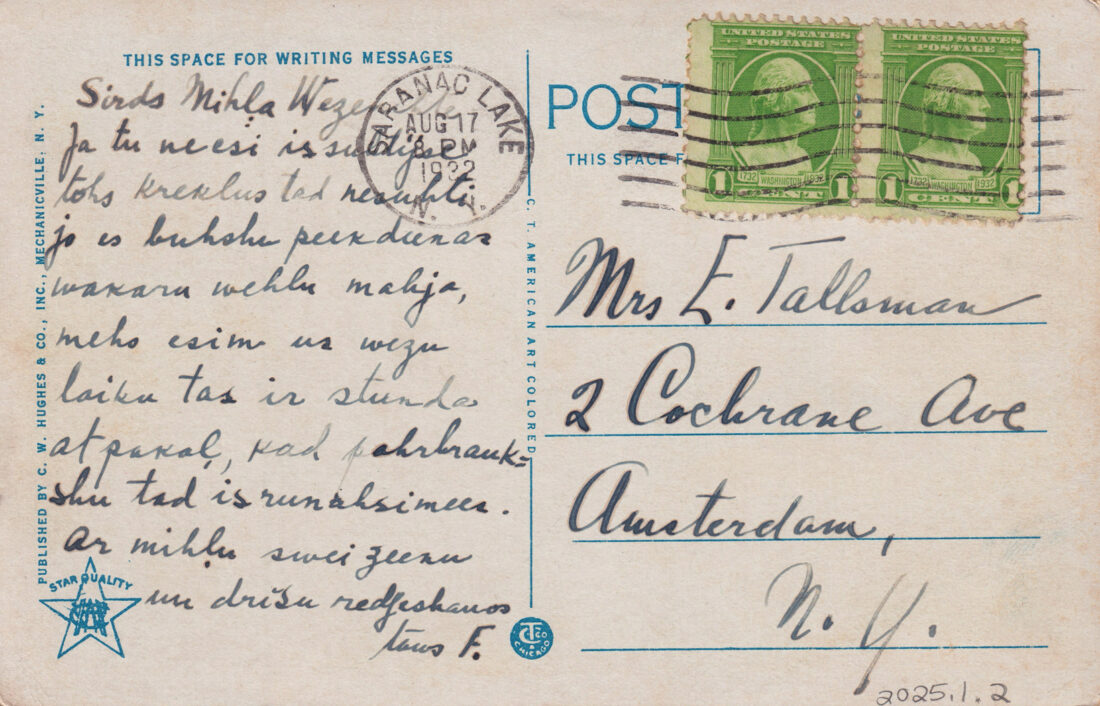 THIS SPACE FOR WRITING MESSAGES
Sirds Mihla
Ja tu ne esi
tohs kreklus tad nesuhti
jo es buhshu peekdienas
wakaru wehlu mahja,
mehs esim us wezu
laiku tas ir stunda
atpakaļ, kad pahrbrauk=
shu tad isrunahsimees.
Ar mihļu sweizeenu
un drīsu redseshanos
taws F.
PUBLISHED BY C. W. HUGHES & CO., INC., MECHANICVILLE, N. Y.
STAR QUALITY
C. T. AMERICAN ART COLORED
CT & CO CHICAGO
SARANAC LAKE
AUG 17
8 PM
1932
N. Y.
POST
THIS SPACE F
UNITED STATES POSTAGE
1732 WASHINGTON 1932
1 CENT 1
UNITED STATES POSTAGE
1732 WASHINGTON 1932
1 CENT 1
Mrs E. Tallsman
2 Cochrane Ave
Amsterdam,
N. Y.
2025.1.2